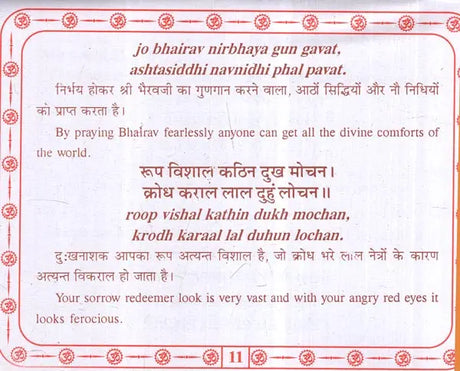 jo bhairav nirbhaya gun gavat,
ashtasiddhi navnidhi phal pavat.
निर्भय होकर श्री भैरवजी का गुणगान करने वाला, आठों सिद्धियों और नौ निधियों
को प्राप्त करता है।
By praying Bhairav fearlessly anyone can get all the divine comforts of
the world.
रूप विशाल कठिन दुख मोचन।
क्रोध कराल लाल दुहुं लोचन॥
roop vishal kathin dukh mochan,
krodh karaal lal duhun lochan.
दुःखनाशक आपका रूप अत्यन्त विशाल है, जो क्रोध भरे लाल नेत्रों के कारण
अत्यन्त विकराल हो जाता है।
Your sorrow redeemer look is very vast and with your angry red eyes it
looks ferocious.
11